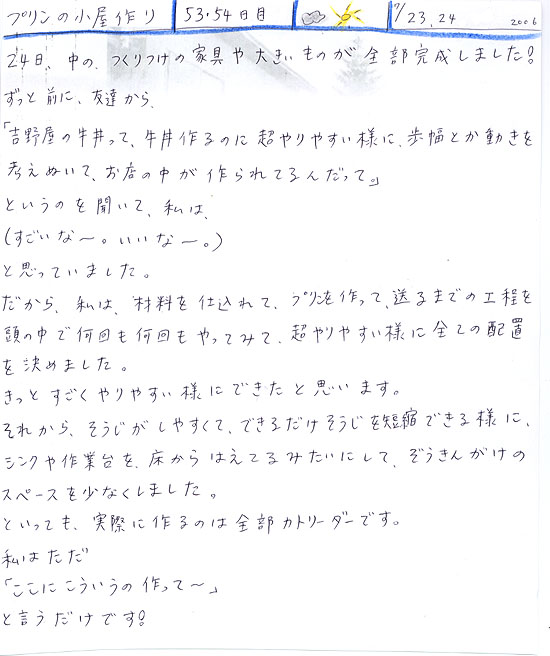 プリンの小屋作り 53・54日目 9/23,24 2006
24日、中の、つくりつけの家具や大きいものが全部完成しました!
ずっと前に、友達から、
「吉野屋の牛丼って、牛丼作るのに超やりやすい様に、歩幅とか動きを
考えぬいて、お店の中が作られてるんだって。」
というのを聞いて、私は、
(すごいな〜。いいな〜。)
と思っていました。
だから、私は、材料を仕込れて、プリンを作って、送るまでの工程を
頭の中で何回も何回もやってみて、超やりやすい様に全ての配置
を決めました。
きっとすごくやりやすい様にできたと思います。
それから、そうじがしやすくて、できるだけそうじを短縮できる様に、
シンクや作業台を、床からはえてるみたいにして、ぞうきんがけの
スペースを少なくしました。
といっても、実際に作るのは全部カトリーダーです。
私はただ
「ここにこういうの作って〜」
と言うだけです!